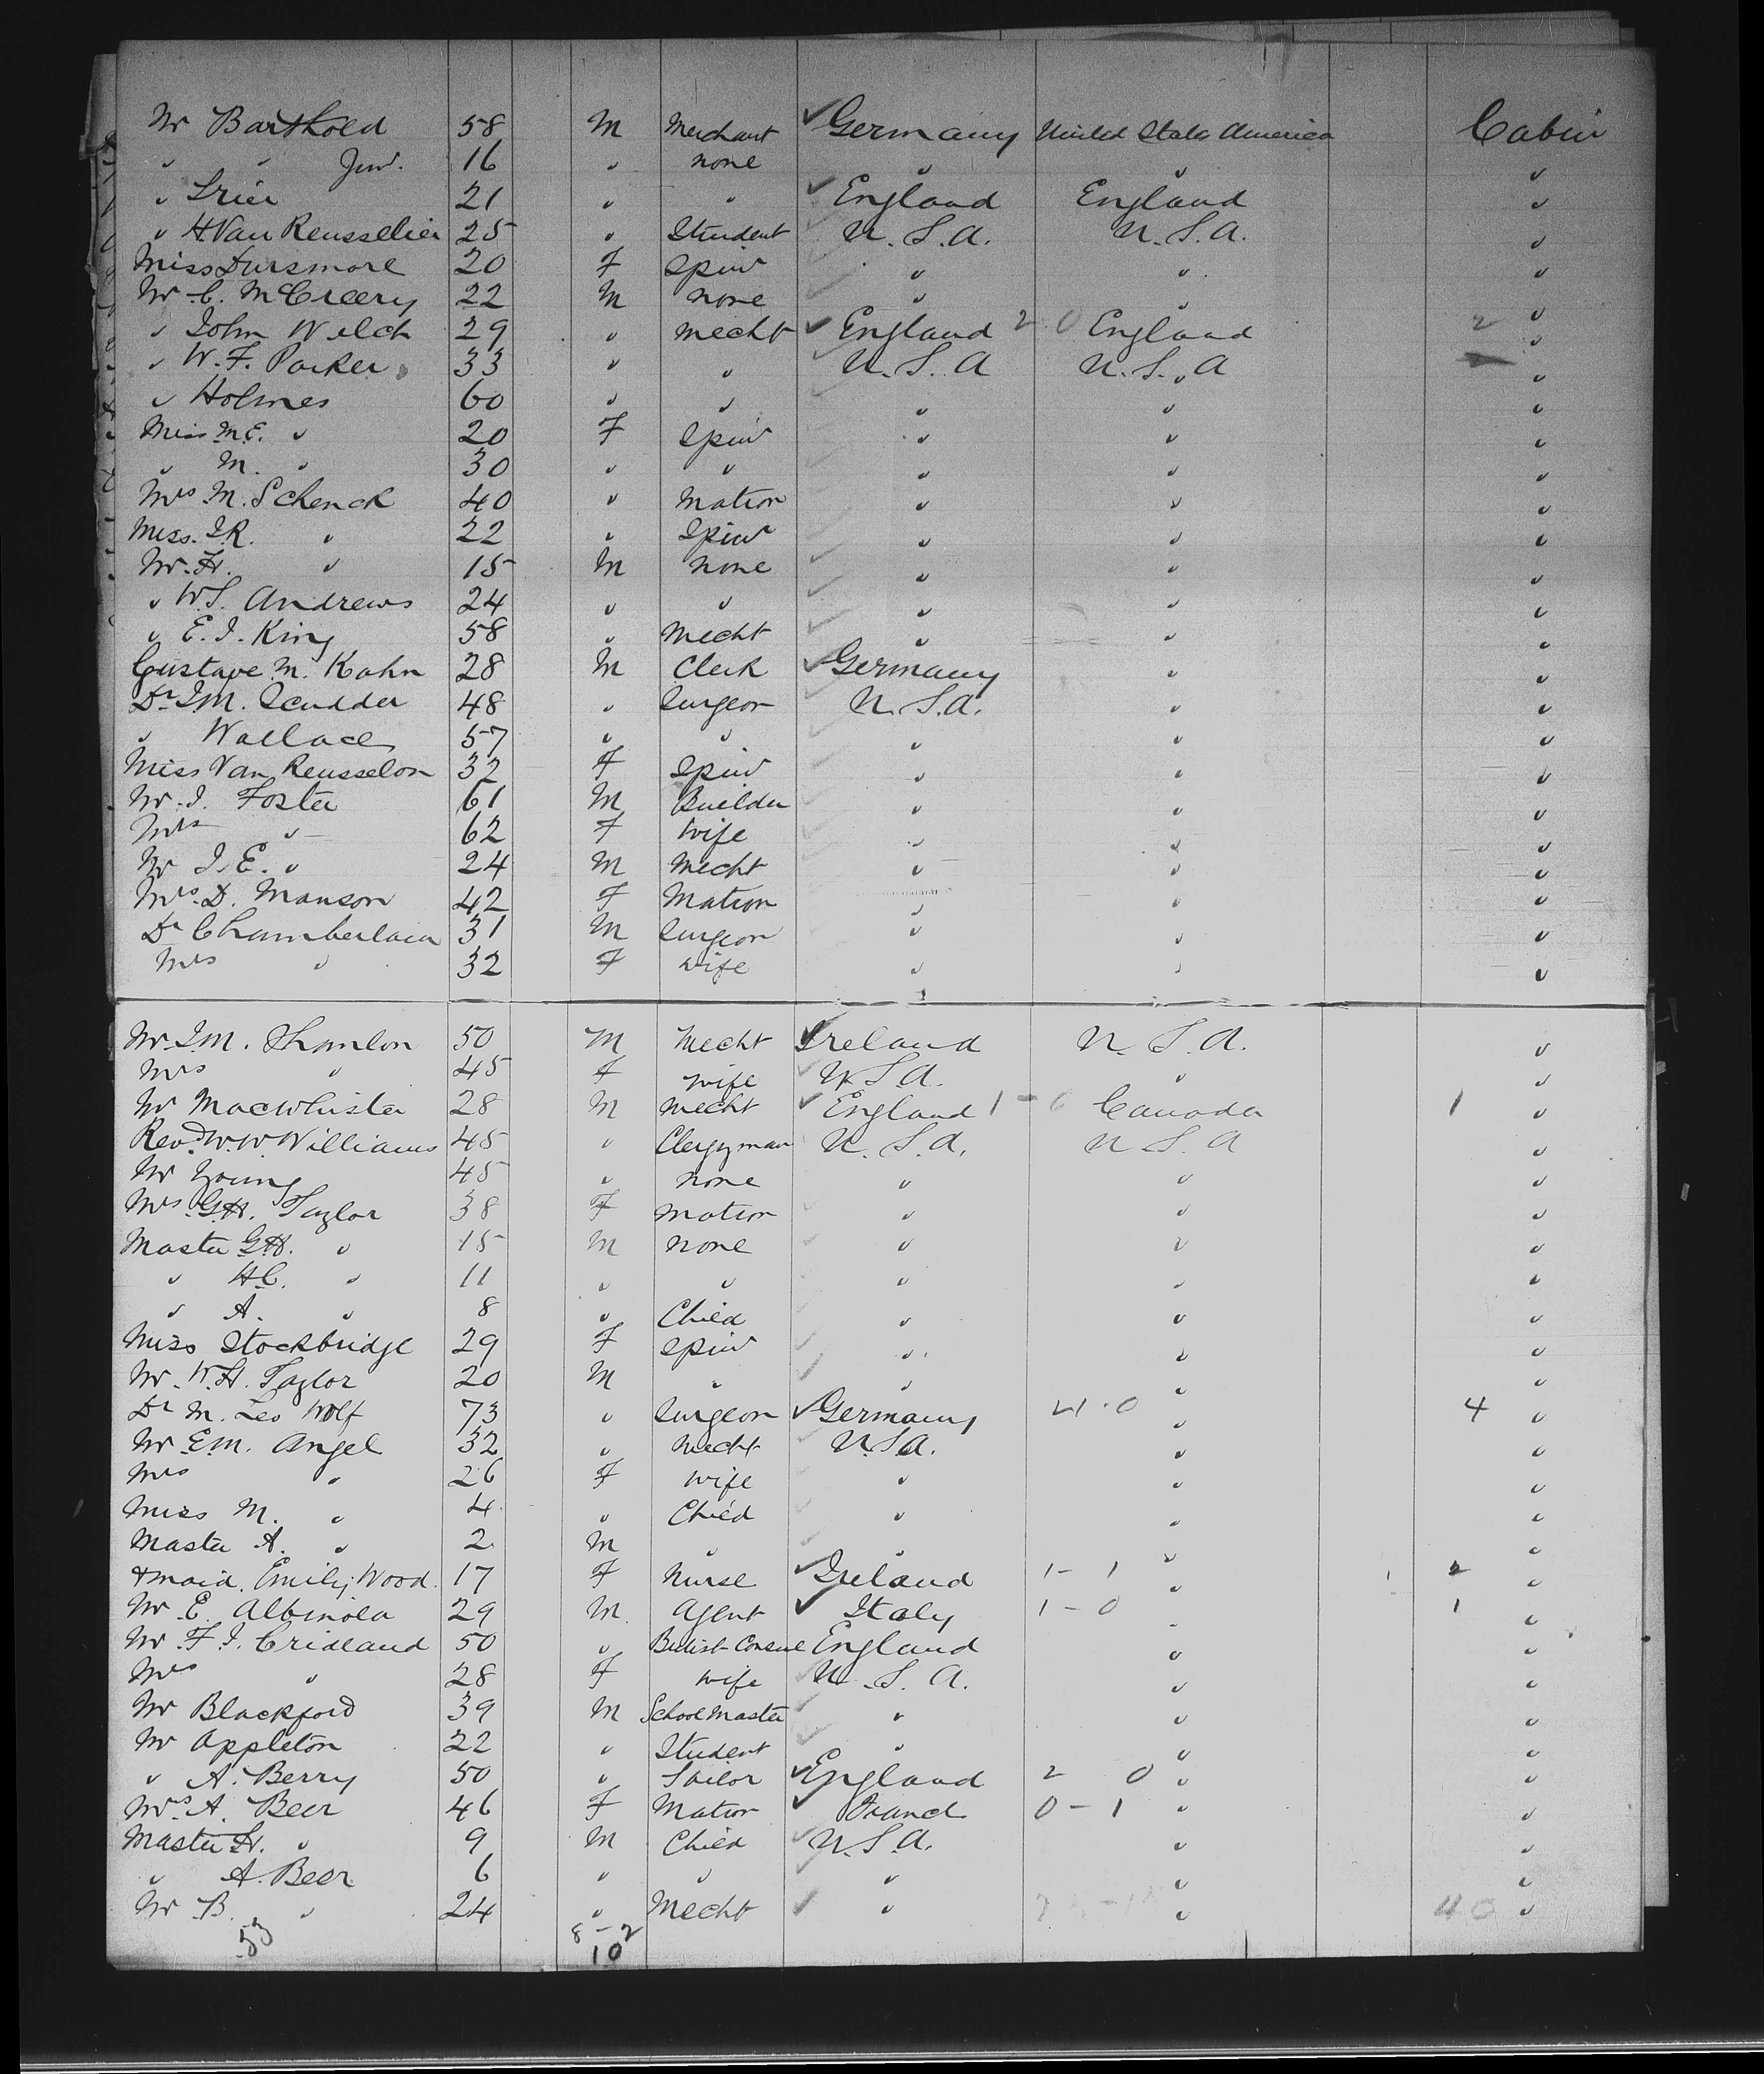 Mr Barthold 58 M Merchant Germany United States America Cabin
" " Junr. 16 " none " " "
" Grier 21 " " England England "
" H Van Reusselier 25 " Student U.S.A. U.S.A. "
Miss Dursmore 20 F Spinr " " "
Mr C. McCreery 22 M none " " "
" John Welch 29 " Mecht England 2 0 England 2 "
" W. F. Parker 33 " " U.S.A U.S.A "
" Holmes 60 " " " " "
Miss M.E. " 20 F Spinr " " "
" M. " 30 " " " " "
Mrs M. Schenck 40 " Matron " " "
Miss. I.R. " 22 " Spinr " " "
Mr. H. " 15 M none " " "
" W.S. Andrews 24 " " " " "
" E. J. King 58 " Mecht " " "
Gustave M. Kahn 28 M Clerk Germany " "
Dr J.M. Scudder 48 " Surgeon U.S.A. " "
" Wallace 57 " " " " "
Miss Van Reusselon 32 F Spinr " " "
Mr. J. Foster 61 M Builder " " "
Mrs " 62 F Wife " " "
Mr J. E. " 24 M Mecht " " "
Mrs. D. Manson 42 F Matron " " "
Dr Chamberlain 31 M Surgeon " " "
Mrs " 32 F Wife " " "
Mr. J.M. Shanlon 50 M Mecht Ireland U.S.A. "
Mrs " 45 F Wife U.S.A. " "
Mr MacWhister 28 M Mecht England 1 - 0 Canada 1 "
Revd. W.W. Williams 45 " Clergyman U.S.A. U.S.A "
Mr Young 45 " none " " "
Mrs G.H. Taylor 38 F Matron " " "
Master G.H. " 15 M none " " "
" H.C. " 11 " " " " "
" A. " 8 " Child " " "
Miss Stockbridge 29 F Spinr " " "
Mr. W.H. Taylor 20 M " " " "
Dr M. Leo Wolf 73 " Surgeon Germany 4 . 0 " 4 "
Mr E.M. Angel 32 " Mecht U.S.A. " "
Mrs " 26 F Wife " " "
Miss M. " 4 " Child " " "
Master A. " 2 M " " " "
+ maid. Emily Wood. 17 F Nurse Ireland 1 - 1 " 2 "
Mr E. Albinola 29 M. Agent Italy 1 - 0 " 1 "
Mr F. J. Cridland 50 " British Consul England " "
Mrs " 28 F Wife U.S.A. " "
Mr Blackford 39 M School Master " " "
Mr Appleton 22 " Student " " "
" A. Berry 50 " Sailor England 2 0 " "
Mrs. A. Beer 46 F Matron France 0 - 1 " "
Master H. " 9 M Child U.S.A. " "
" A. Beer 6 " " " " "
Mr B. " 24 " Mecht " " 40 "
53 8 - 2
10